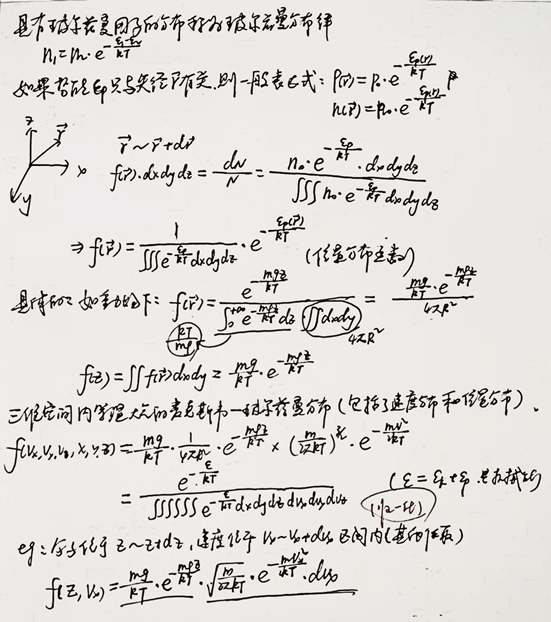 具有玻尔兹曼因子的分布称为玻尔兹曼分布律
n₁=n₂·e^{-\frac{ε₁-ε₂}{kT}}
如果势能εp只与矢径r有关,则一般表达式: P(r)=P₀·e^{-\frac{εp(r)}{kT}}
n(r)=n₀·e^{-\frac{εp(r)}{kT}}
z
\vec{r}
x
y
\vec{r}~\vec{r}+d\vec{r}
f(\vec{r})·dxdydz = \frac{dN}{N} = \frac{n₀·e^{-\frac{εp}{kT}}·dxdydz}{∭n₀·e^{-\frac{εp}{kT}}dxdydz}
⇒ f(\vec{r})=\frac{1}{∭e^{-\frac{εp}{kT}}dxdydz}·e^{-\frac{εp(\vec{r})}{kT}} (位置分布函数)
具体的: 如重力场下: f(\vec{r})=\frac{e^{-\frac{mgz}{kT}}}{∫_0^{+∞}e^{-\frac{mgz}{kT}}dz ∬dxdy} = \frac{\frac{mg}{kT}·e^{-\frac{mgz}{kT}}}{4πR²}
\frac{kT}{mg} 4πR²
f(z)=∬f(\vec{r})dxdy = \frac{mg}{kT}·e^{-\frac{mgz}{kT}}
三维空间内等温大气的麦克斯韦—玻尔兹曼分布(包括了速度分布和位置分布).
f(vx,vy,vz,x,y,z)=\frac{mg}{kT}·\frac{1}{4πR²}·e^{-\frac{mgz}{kT}}×(\frac{m}{2πkT})^{3/2}·e^{-\frac{mv²}{2kT}}
=\frac{e^{-\frac{ε}{kT}}}{∭∭e^{-\frac{ε}{kT}}dxdydzdvxdvydvz} (ε=εk+εp
eg: 分子位于z~z+dz,速度位于vx~vx+dvx区间内(其的概率)
f(z,vx)=\frac{mg}{kT}·e^{-\frac{mgz}{kT}}·\sqrt{\frac{m}{2πkT}}·e^{-\frac{mvx²}{2kT}}·dvx